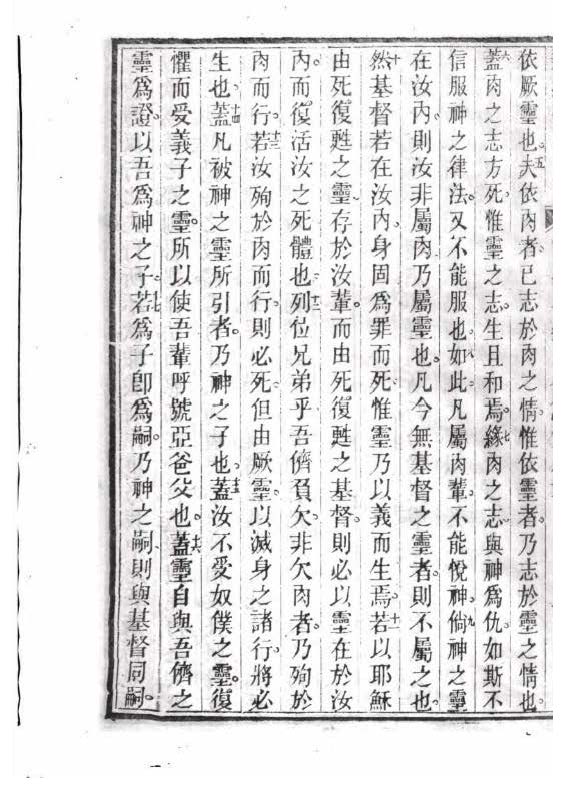 依厥靈也五夫依肉者已志於肉之情惟依靈者乃志於靈之情也
六蓋肉之志方死惟靈之志生且和焉七緣肉之志與神爲仇如斯不
信服神之律法又不能服也八如此凡屬肉輩不能悅神九倘神之靈
在汝內則汝非屬肉乃屬靈也凡今無基督之靈者則不屬之也
十然基督若在汝內身固爲罪而死惟靈乃以義而生焉十一若以耶穌
由死復甦之靈存於汝輩而由死復甦之基督則必以靈在於汝
內而復活汝之死體也十二列位兄弟乎吾儕負欠非欠肉者乃殉於
肉而行十三若汝殉於肉而行則必死但由厥靈以滅身之諸行將必
生也十四蓋凡被神之靈所引者乃神之子也十五蓋汝不愛奴僕之靈復
懼而受義子之靈所以使吾輩呼號亞爸父也十六蓋靈自與吾儕之
靈爲證以吾爲神之子十七若爲子卽爲嗣乃神之嗣則與基督同嗣